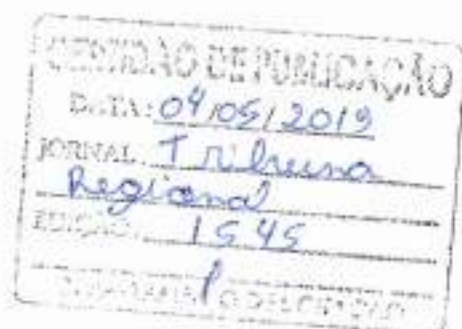 CERTIDÃO DE PUBLICAÇÃO
DATA: 04/05/2019
JORNAL Tribuna
Regional
EDIÇÃO: 1545